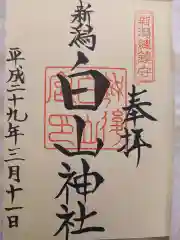 新潟總鎮守
奉拝
新潟
白山神社
平成二十九年二月十一日